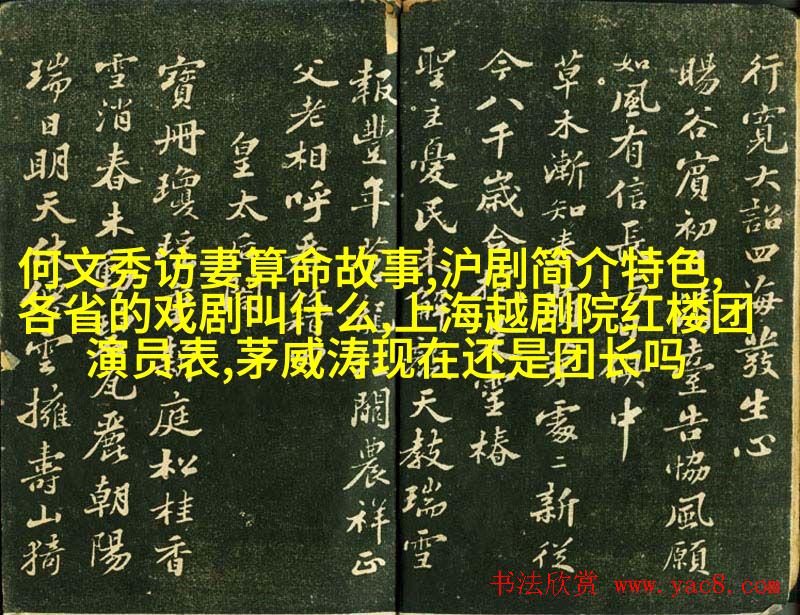 何文秀访妻算命故事,沪剧简介特色,
各省的戏剧叫什么,上海越剧院红楼团
演员表,茅威涛现在还是团长吗
行寬大詔四海發生心
暘谷賓初臺告協風願
如風有信長日中
草木漸知春處二新從
今八千歲合靈椿
聖主憂民未解天教瑞雪
報豐年闕農祥正
父老相呼
皇太后
寶冊瓊庭松桂香
雪消春未動瓦麗朝陽
瑞日明天雲擁壽山猗
书法欣赏 www.yac8.com